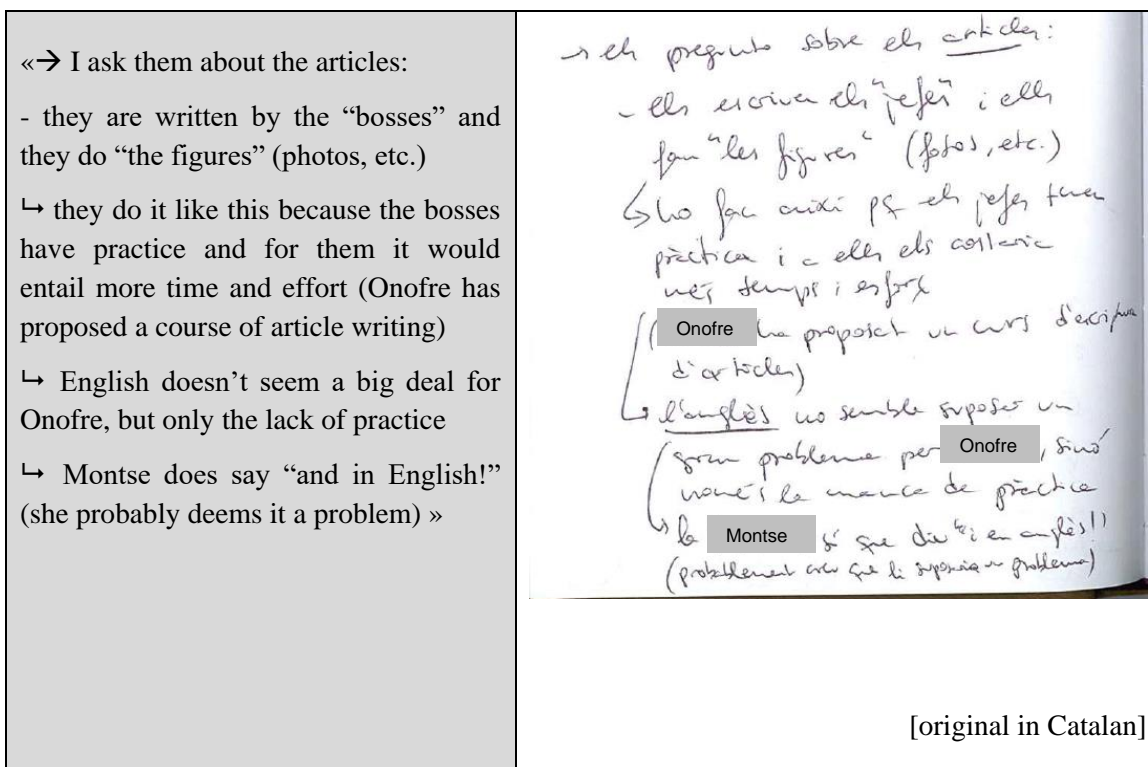 «→ I ask them about the articles:
- they are written by the “bosses” and
they do “the figures” (photos, etc.)
↳ they do it like this because the bosses
have practice and for them it would
entail more time and effort (Onofre has
proposed a course of article writing)
↳ English doesn’t seem a big deal for
Onofre, but only the lack of practice
↳ Montse does say “and in English!”
(she probably deems it a problem) »
→ els pregunto sobre els articles:
- els escriuen els "jefes" i ells
fan "les figures" (fotos, etc.)
↳ ho fan així pq els jefes tenen
pràctica i a ells els costaria
més temps i esforç
(Onofre ha proposat un curs d'escriptura
d'articles)
↳ l'anglès no sembla suposar un
gran problema per Onofre, sinó
només la manca de pràctica
↳ la Montse sí que diu "i en anglès!"
(probablement creu que li suposaria un problema)
[original in Catalan]